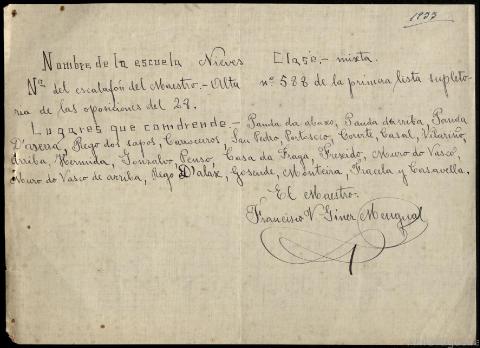 1933
Nombre de la escuela Nieves Clase.- mixta.
Nº del escalafón del Maestro.- Alta nº 588 de la primera lista supleto-
ria de las oposiciones del 28.
Lugares que comprende - Panda da abaxo, Panda da riba, Panda
D'arena, Rego dos sapos, Caroceiros, San Pedro, Portoscio, Couste, Casal, Vilariño,
Arriba, Hermida, Gonzalvo, Penso, Casa da Fraga, Frexido, Muro do Vasco,
Muro do Vasco de arriba, Rego D'alax, Gosende, Monteira, Fracela y Casavella.
El Maestro:
Francisco V. Giner Mengual